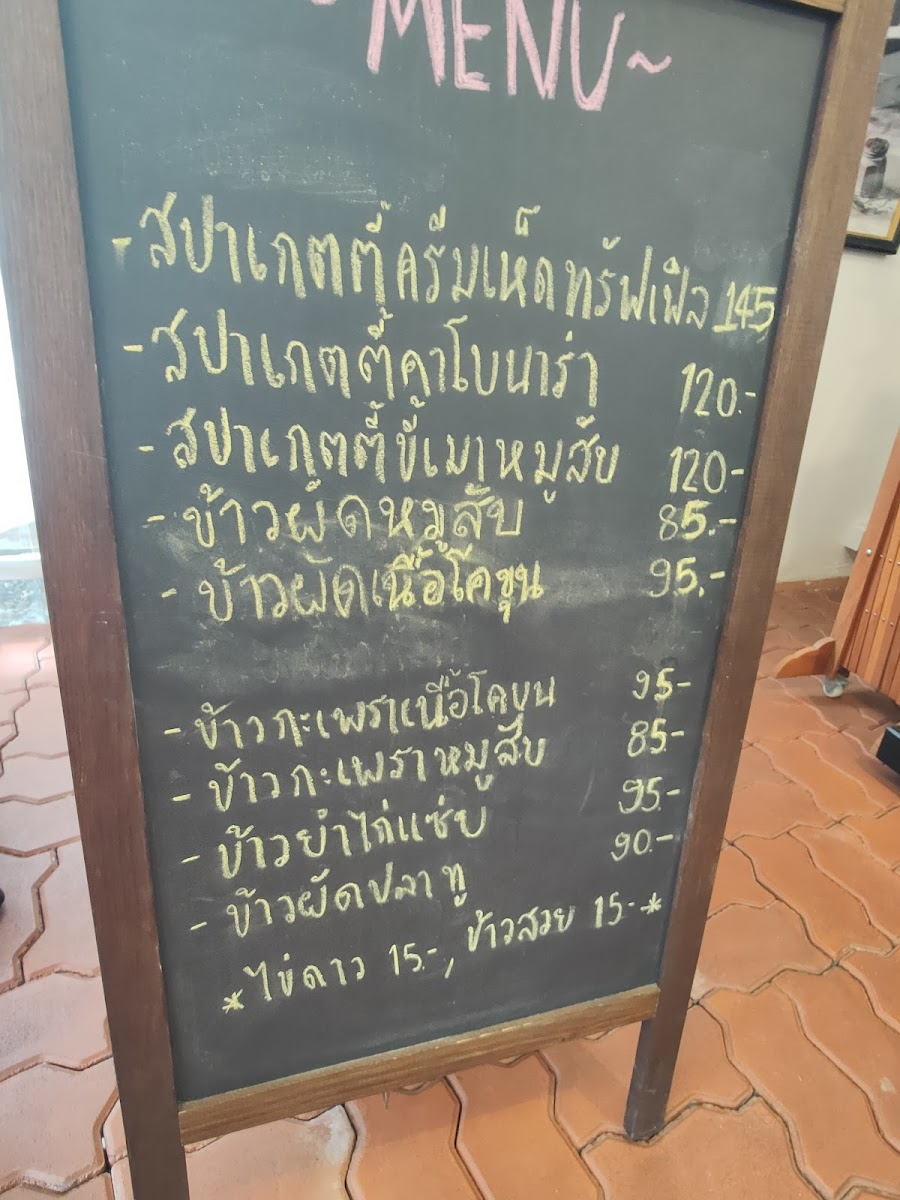 ~MENU~
- สปาเกตตี้ครีมเห็ดทรัฟเฟิล 145
- สปาเกตตี้คาโบนาร่า 120.-
- สปาเกตตี้ขี้เมาหมูสับ 120.-
- ข้าวผัดหมูสับ 85.-
- ข้าวผัดเนื้อโคขุน 95.-
- ข้าวกะเพราเนื้อโคขุน 95-
- ข้าวกะเพราหมูสับ 85.-
- ข้าวยำไก่แซ่บ 95.-
- ข้าวผัดปลาทู 90.-
*ไข่ดาว 15.-, ข้าวสวย 15-*